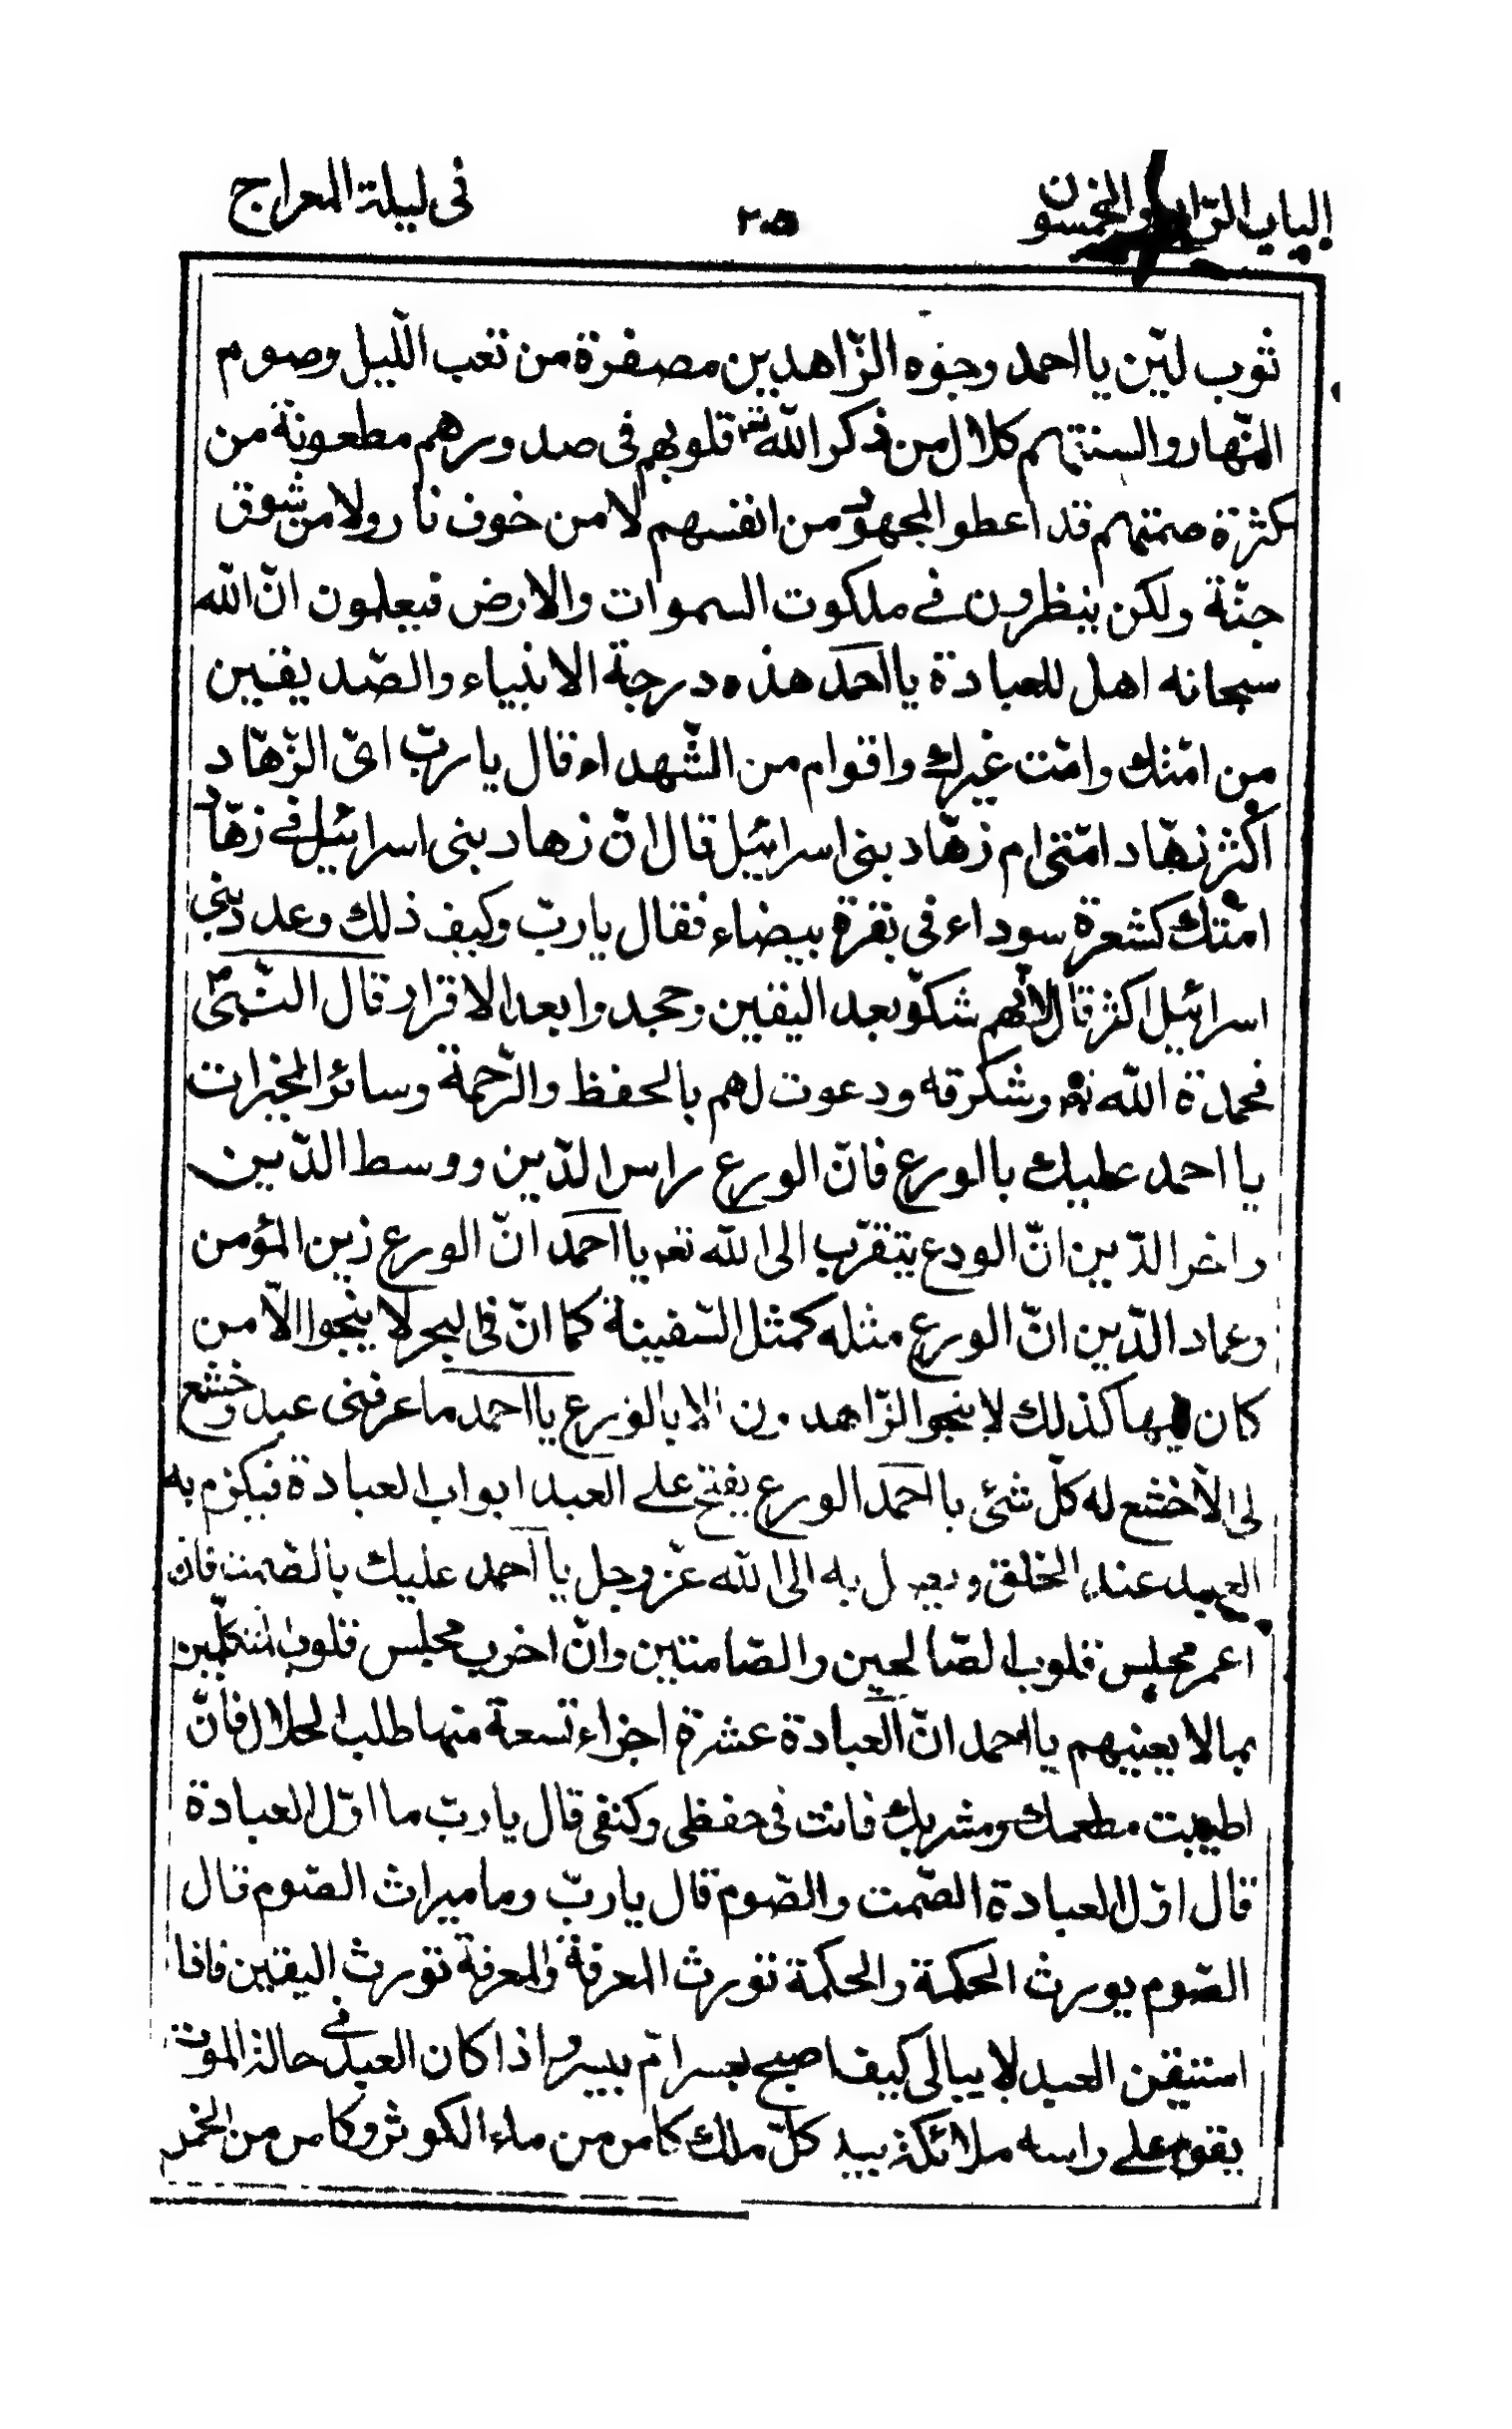 الباب الرابع والخمسون ٢٠٥ في ليلة المعراج
ثوب ليّن يا احمد وجوه الزّاهدين مصفرة من تعب اللّيل وصوم
النّهار والسنتهم كلال من ذكر اللّه تع قلوبهم فى صدورهم مطعونة من
كثرة صمتهم قد اعطوا المجهود من انفسهم لا من خوف نار ولا من شوق
جنّة ولكن ينظرون في ملكوت السموات والارض فيعلمون انّ اللّه
سبحانه اهل للعبادة يا احمد هذه درجة الانبياء والصّديقين
من امّتك وامّت غيرك واقوام من الشّهداء قال يا ربّ اىّ الزّهّاد
اكثر زهّاد امّتى ام زهّاد بنى اسرائيل قال انّ زهاد بنى اسرائيل في زهّاد
امّتك كشعرة سوداء فى بقرة بيضاء فقال يا ربّ وكيف ذلك وعدد بنى
اسرائيل اكثر قال لانّهم شكّو بعد اليقين وجحدوا بعد الاقرار قال النّبىّ
فحمدة اللّه تع وشكرته ودعوت لهم بالحفظ والرّحمة وسائر الخيرات
يا احمد عليك بالورع فانّ الورع راس الدّين ووسط الدّين
واخر الدّين انّ الورع يتقرّب الى اللّه تع يا احمد انّ الورع زين المؤمن
وعماد الدّين انّ الورع مثله كمثل السّفينة كما انّ فى البحر لا ينجوا الّا من
كان فيها كذلك لا ينجوا الزّاهدون الا بالورع يا احمد ما عرفنى عبد وخشع
لى الّا خشع له كلّ شئ يا احمد الورع يفتح على العبد ابواب العبادة فيكرم به
العبد عند الخلق ويصل به الى اللّه عزّ وجل يا احمد عليك بالصّمت فان
اعمر مجلس قلوب الصّالحين والصّامتين وانّ اخرب مجلس قلوب المتكلّمين
بما لا يعنيهم يا احمد انّ العبادة عشرة اجزاء تسعة منها طلب الحلال فانّ
اطيبت مطعمك ومشربك فانت فى حفظى وكنفى قال يا ربّ ما اوّل العبادة
قال اوّل العبادة الصّمت والصّوم قال يا ربّ وما ميراث الصّوم قال
الصّوم يورث الحكمة والحكمة تورث المعرفة والمعرفة تورث اليقين فاذا
استيقن العبد لا يبالى كيف اصبح بعسر ام بيسر واذا كان العبد في حالة الموت
يقوم على راسه ملائكة بيد كلّ ملك كاس من ماء الكوثر وكاس من الخمر